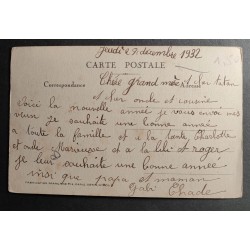 Jeudi 27 décembre 1932
CARTE POSTALE
Chère grand mère et
Correspondance Adresse
et son oncle et cousine
Voici la nouvelle année je vous envoi mes
vœux je souhaite une bonne année
a toute la famille et a la tante Charlotte
et oncle et a la et roger
je leur souhaite une bonne année
aussi que papa et maman
Gabi